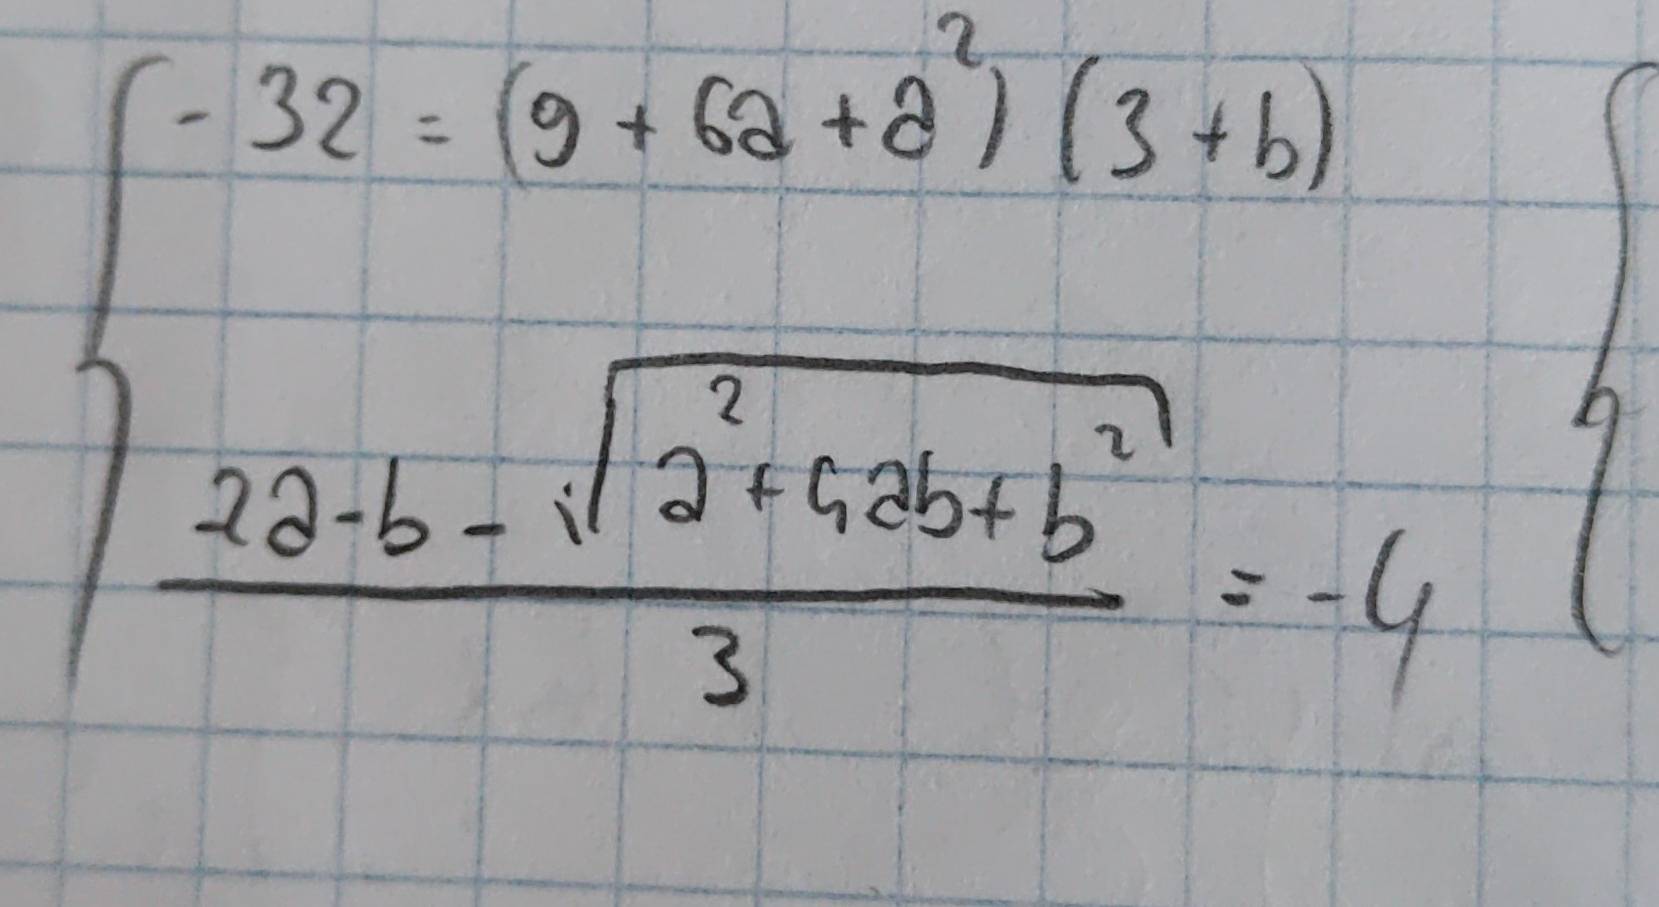 -32 = (9 + 6a + a²) (3 + b)
2a-b - √(a² + 4ab + b²)
= -4
3